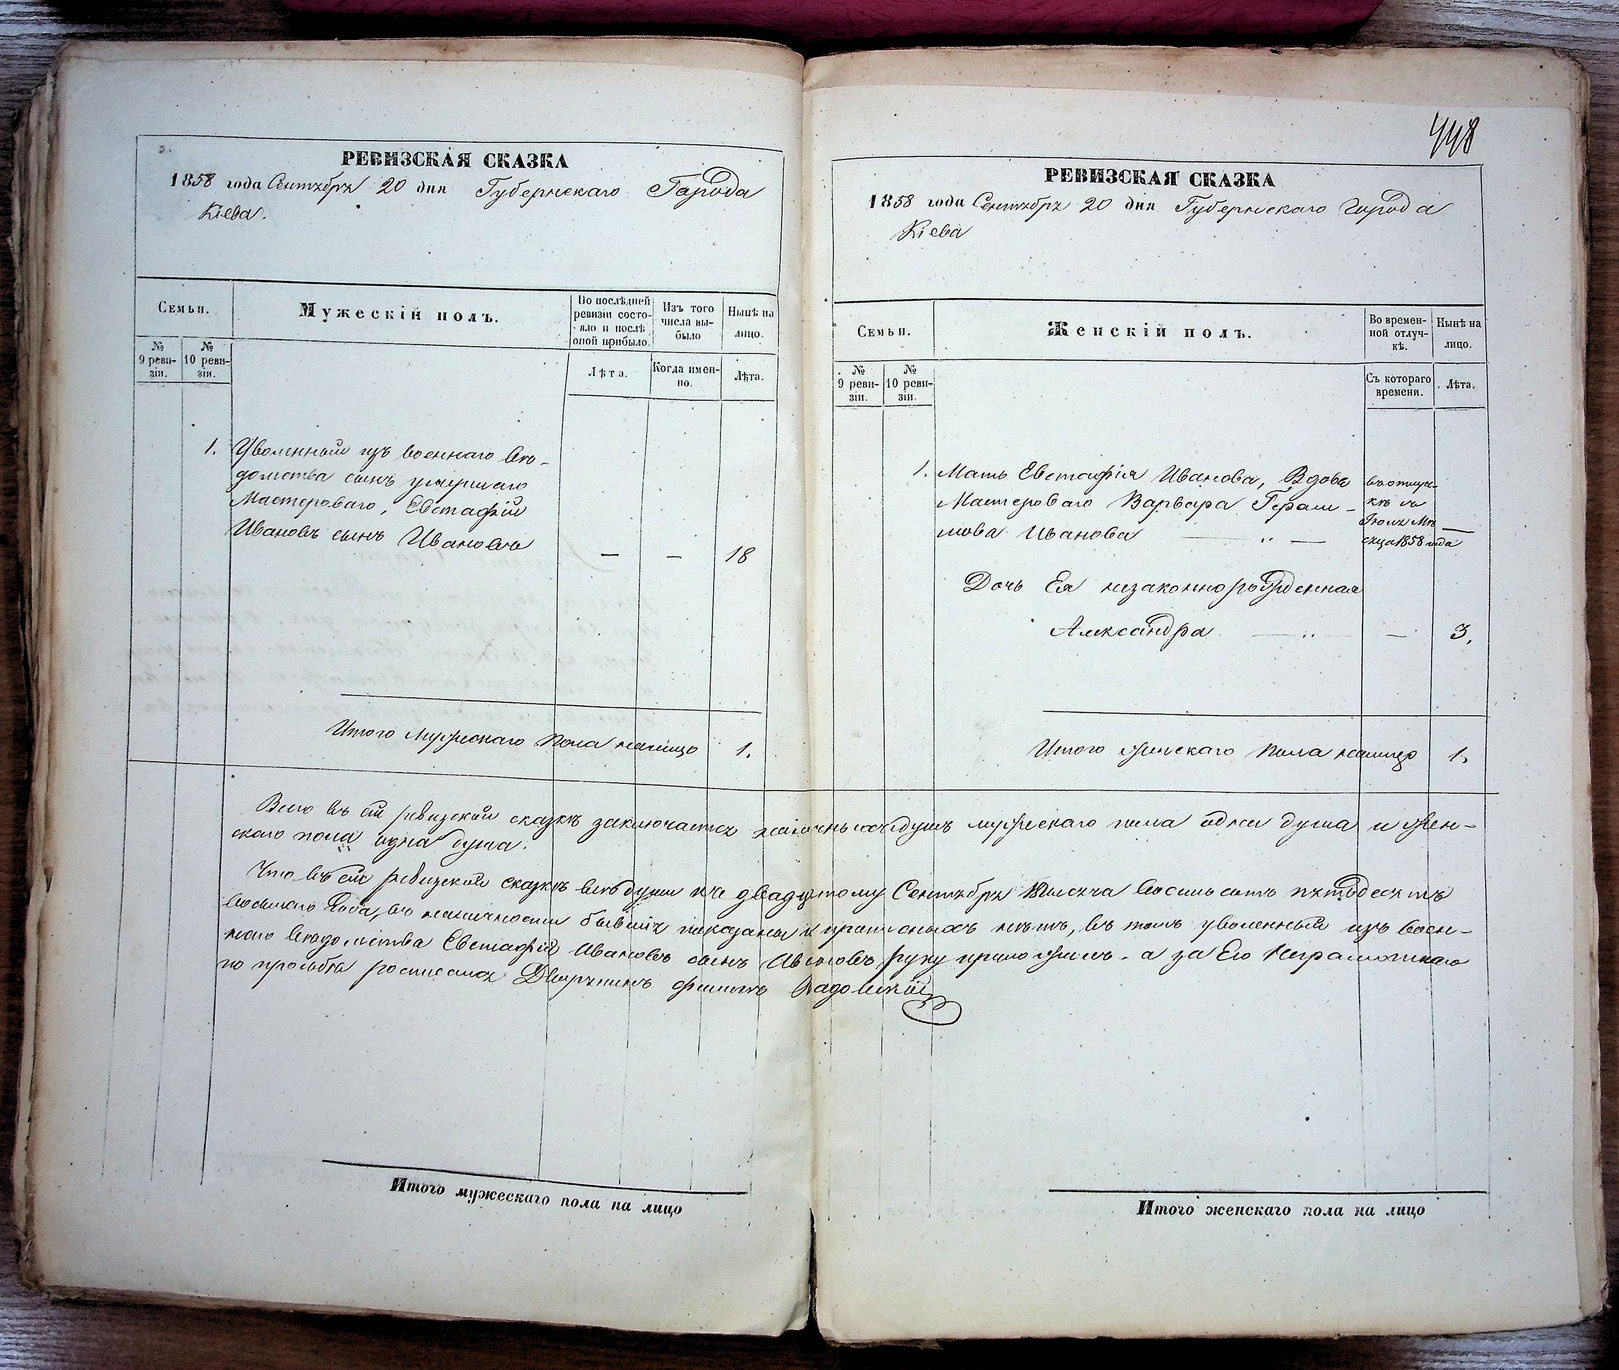 РЕВИЗСКАЯ СКАЗКА
1858 года Сентября 20 дня Губернскаго Города
Кіева.
Семьи.
Мужескій полъ.
Во послѣдней ревизіи состояло и послѣ оной прибыло.
Изъ того числа выбыло
Нынѣ на лицо.
№ 9 ревизіи.
№ 10 ревизіи.
Лѣта.
Когда именно.
Лѣта.
1. Уволенный изъ военнаго вѣ-
домства сынъ умершаго
Мастероваго, Евстафій
Ивановъ сынъ Ивановъ — — 18
Итого мужескаго пола налицо 1.
448
РЕВИЗСКАЯ СКАЗКА
1858 года Сентября 20 дня Губернскаго города
Кіева
Семьи.
Женскій полъ.
Во временной отлучкѣ.
Нынѣ на лицо.
№ 9 ревизіи.
№ 10 ревизіи.
Съ котораго времени.
Лѣта.
1. Мать Евстафія Иванова, Вдова
Мастероваго Варвара Гераси-
мова Иванова
въ отлуч-
кѣ съ
Іюля Мѣ-
сяца 1858 года —
Дочь Ея незаконнорожденная
Александра — 3.
Итого женскаго пола налицо 1.
Всего въ сей ревизской сказкѣ заключается наличныхъ душъ мужескаго пола одна душа и жен-
скаго пола одна душа.
Что въ сей ревизской сказкѣ всѣ души къ двадцатому Сентября тысяча восемьсотъ пятьдесятъ
восьмаго Года, въ наличности бывшія показаны и прописныхъ нѣтъ, въ томъ уволенный изъ воен-
наго вѣдомства Евстафій Ивановъ сынъ Ивановъ руку приложилъ. а за Его Неграмотнаго
по просьбѣ росписался Дворянинъ
Итого мужескаго пола на лицо
Итого женскаго пола на лицо